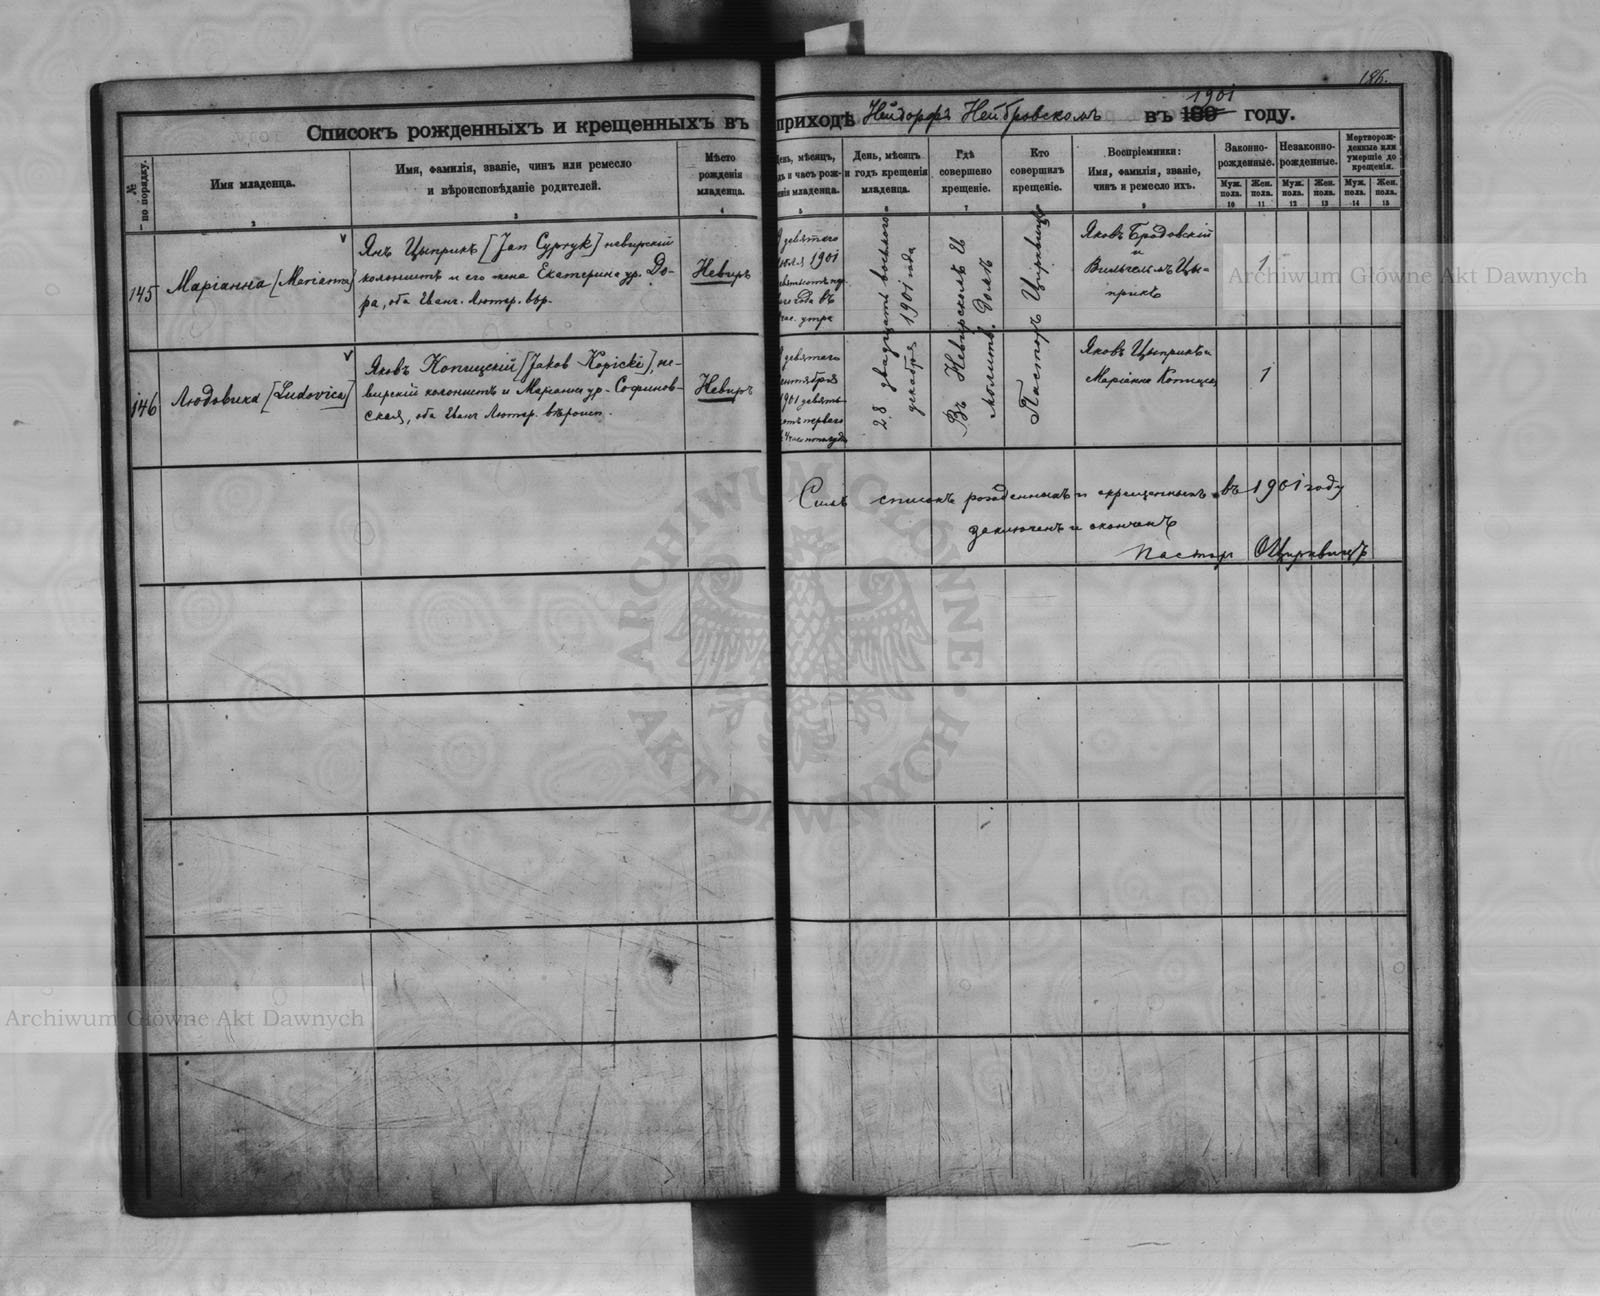 186.
Списокъ рожденныхъ и крещенныхъ въ приходѣ Нейдорфъ Нейбровскомъ въ 1901 году.
№ по порядку.
Имя младенца.
Имя, фамилія, званіе, чинъ или ремесло
и вѣроисповѣданіе родителей.
Мѣсто
рожденія
младенца.
День, мѣсяцъ, годъ и часъ рожденія младенца.
День, мѣсяцъ
и годъ крещенія
младенца.
Гдѣ
совершено
крещеніе.
Кто
совершилъ
крещеніе.
Воспріемники:
Имя, фамилія, званіе,
чинъ и ремесло ихъ.
Законно-
рожденные.
Незаконно-
рожденные.
Мертворож-
денные или
умершіе до
крещенія.
Муж. пола.
Жен. пола.
Муж. пола.
Жен. пола.
Муж. пола.
Жен. пола.
2 3 4 5 7 9 10 11 12 13 14 15
145
Маріанна [Marianna]
Янъ Цыприкъ [Jan Cypryk] невирскій
колонистъ и его жена Екатерина ур. До-
ра, оба Еванг. Лютер. вѣр.
Невиръ
девятаго
1901
года въ
час. утра
28 двадцать восьмого
декабря 1901 года
Въ Невирскомъ
молитв. домѣ
Пасторъ Цирквицъ
Яковъ Бродовскій
и
Вильгельмъ Цы-
прикъ
1
146
Людовика [Ludovica]
Яковъ Копицкій [Jakob Kopicki], не-
вирскій колонистъ и Маріанна ур. Софинов-
ская, оба Еванг Лютер. вѣроисп.
Невиръ
девятаго
сентября
1901 девять-
сотъ перваго
Яковъ Цыприкъ и
Маріанна Копицкая
1
Симъ списокъ рожденныхъ и крещенныхъ въ 1901 году
заключенъ и оконченъ
Пасторъ Цирквицъ
Archiwum Główne Akt Dawnych
Archiwum Główne Akt Dawnych
ARCHIWUM GŁÓWNE AKT DAWNYCH